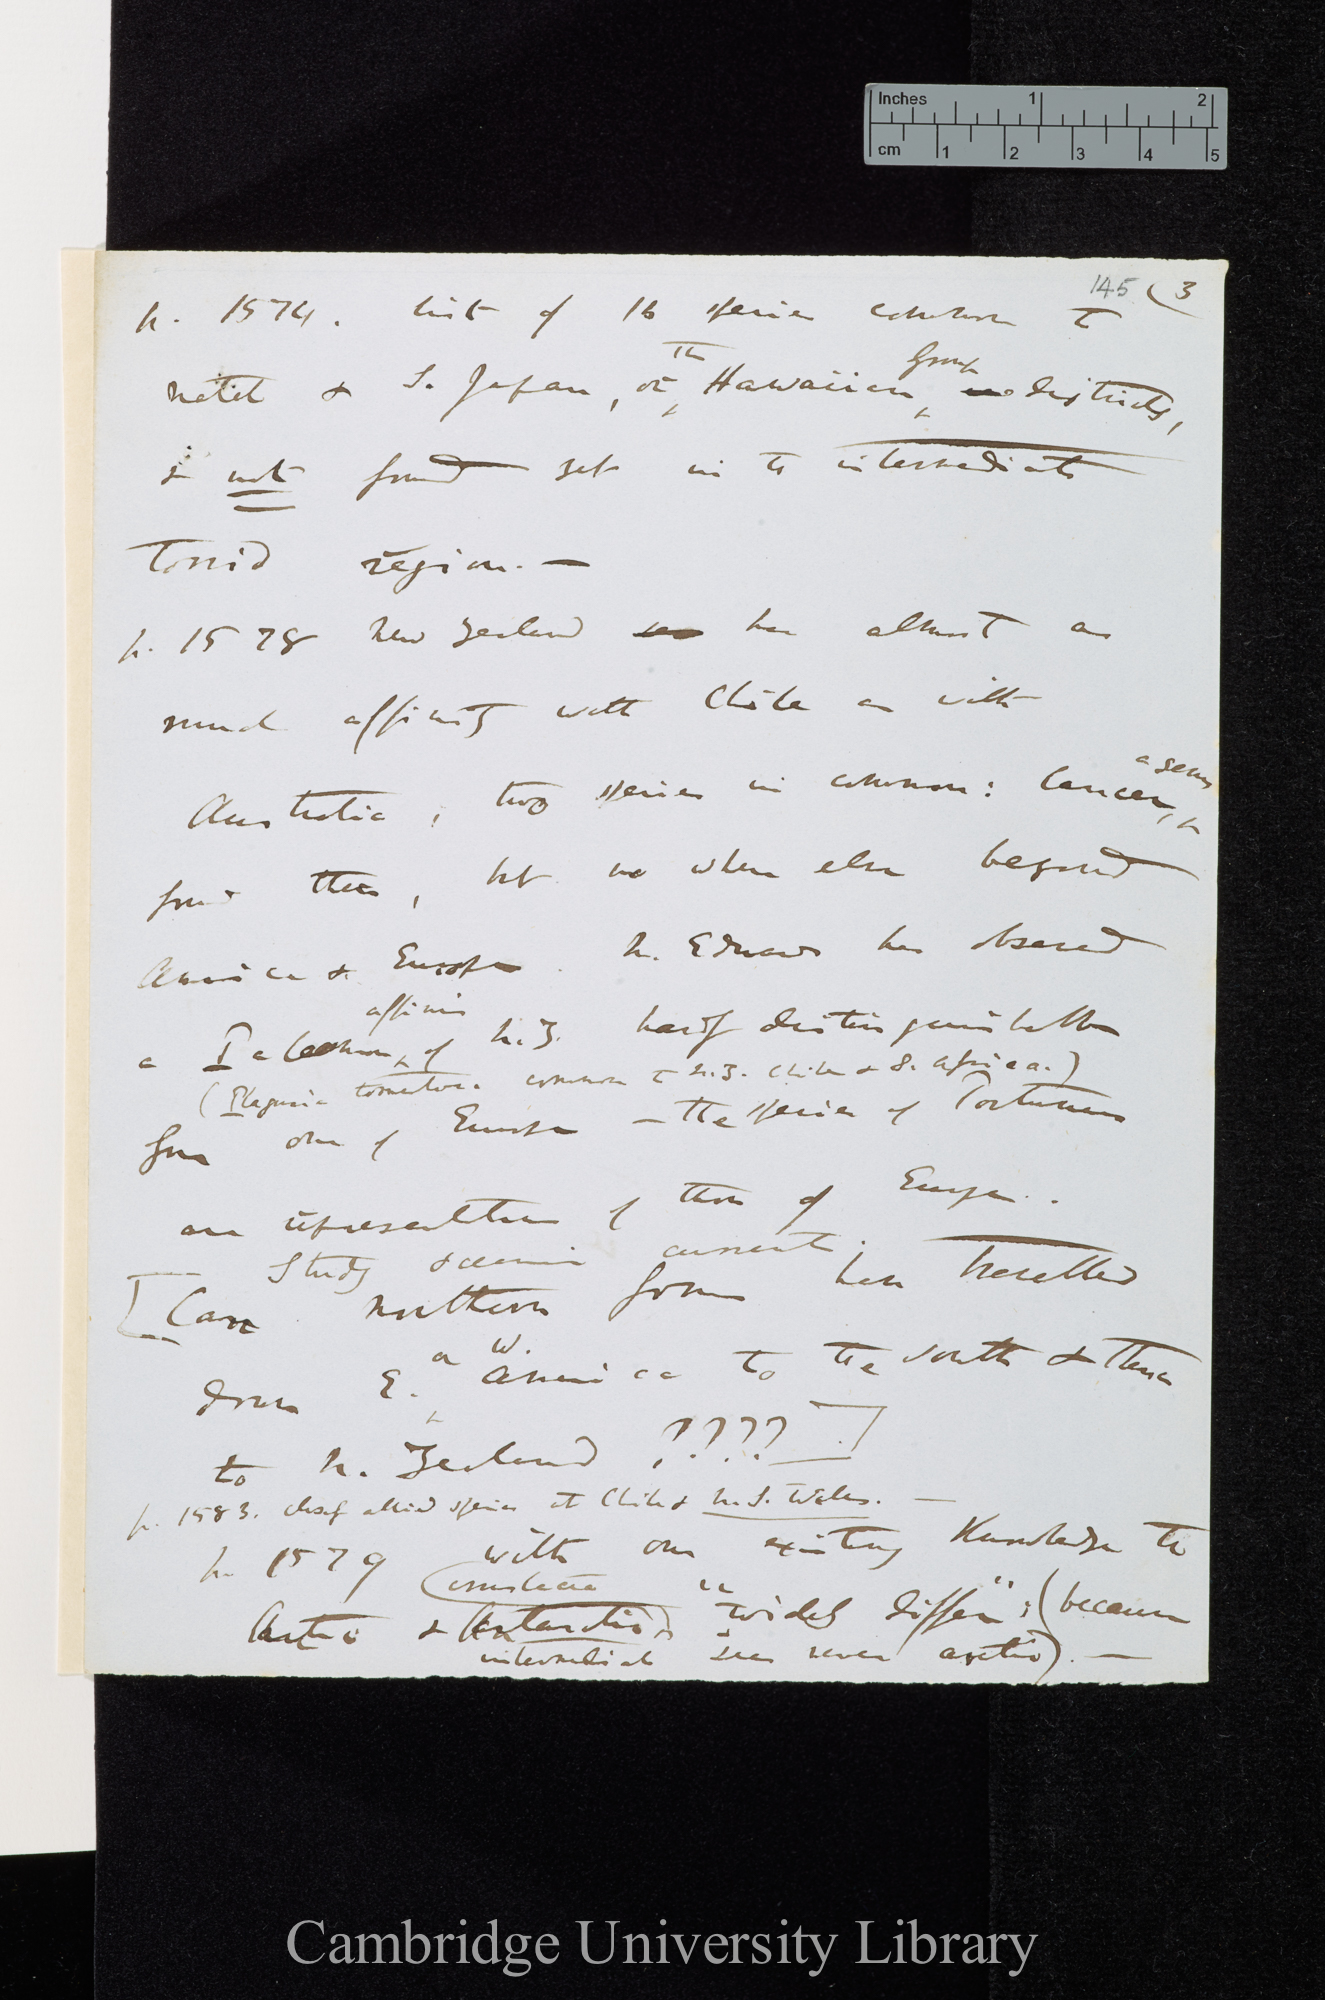 Inches 1 2
cm 1 2 3 4 5
145 (3
p. 1574. List of 16 species common to
Natal & S. Japan, or the Hawaiian Group districts,
& not found yet in the intermediate
Torrid region. —
p. 1578 New Zealand has almost as
much affinity with Chile as with
Australia, two species in common: Cancer, a genus
found there, but no where else beyond
America & Europe. M. Edwards has observed
a Palaemon, affinis of N.Z. hardly distinguishable
(Plagusia tomentosa common to N.Z. Chile & S. Africa.)
from one of Europe — The species of Portunus
are representatives of those of Europe.
Study oceanic currents.
[Can northern forms have travelled
down E. or W. America to the South & thence
to N. Zealand ????]
p. 1583. closely allied species at Chile & N.S. Wales. —
p. 1579 with our existing knowledge the
Crustacea
Arctic & Antarctic "widely differ"; (because
intermediate seas never arctic). —
Cambridge University Library